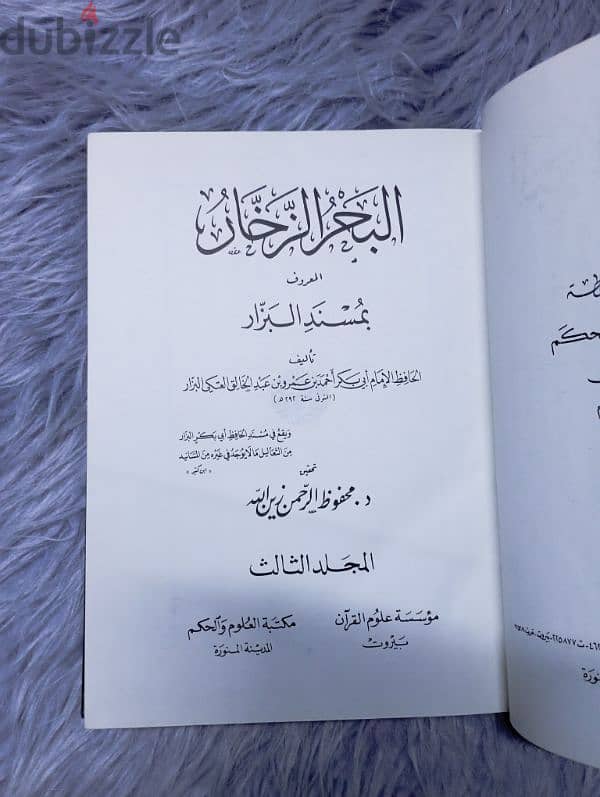 dubizzle
البَحْرُ الزَّخَّارُ
المعروف
بمُسْنَدِ البَزَّار
تأليف
الحَافِظ الإمَام أبي بَكر أحْمَد بن عَمْرو بن عَبْد الخَالِق العَتكي البَزار
(المتوفى سنة ٢٩٢ هـ)
وَيَقَعُ في مُسْنَدِ الحَافِظِ أبي بَكْرٍ البَزَّار
مِنَ التَعَاليل مَا لَا يُوجَدُ في غَيْره مِنَ المَسَانيد
« ابن كثير »
تحقيق
د. محفوظ الرحمن زين الله
المجَلد الثالث
مؤسَسَة علوم القرآن
بَيروت
مكتبَة العُلوم وَالحكم
المَدينَة المنورة